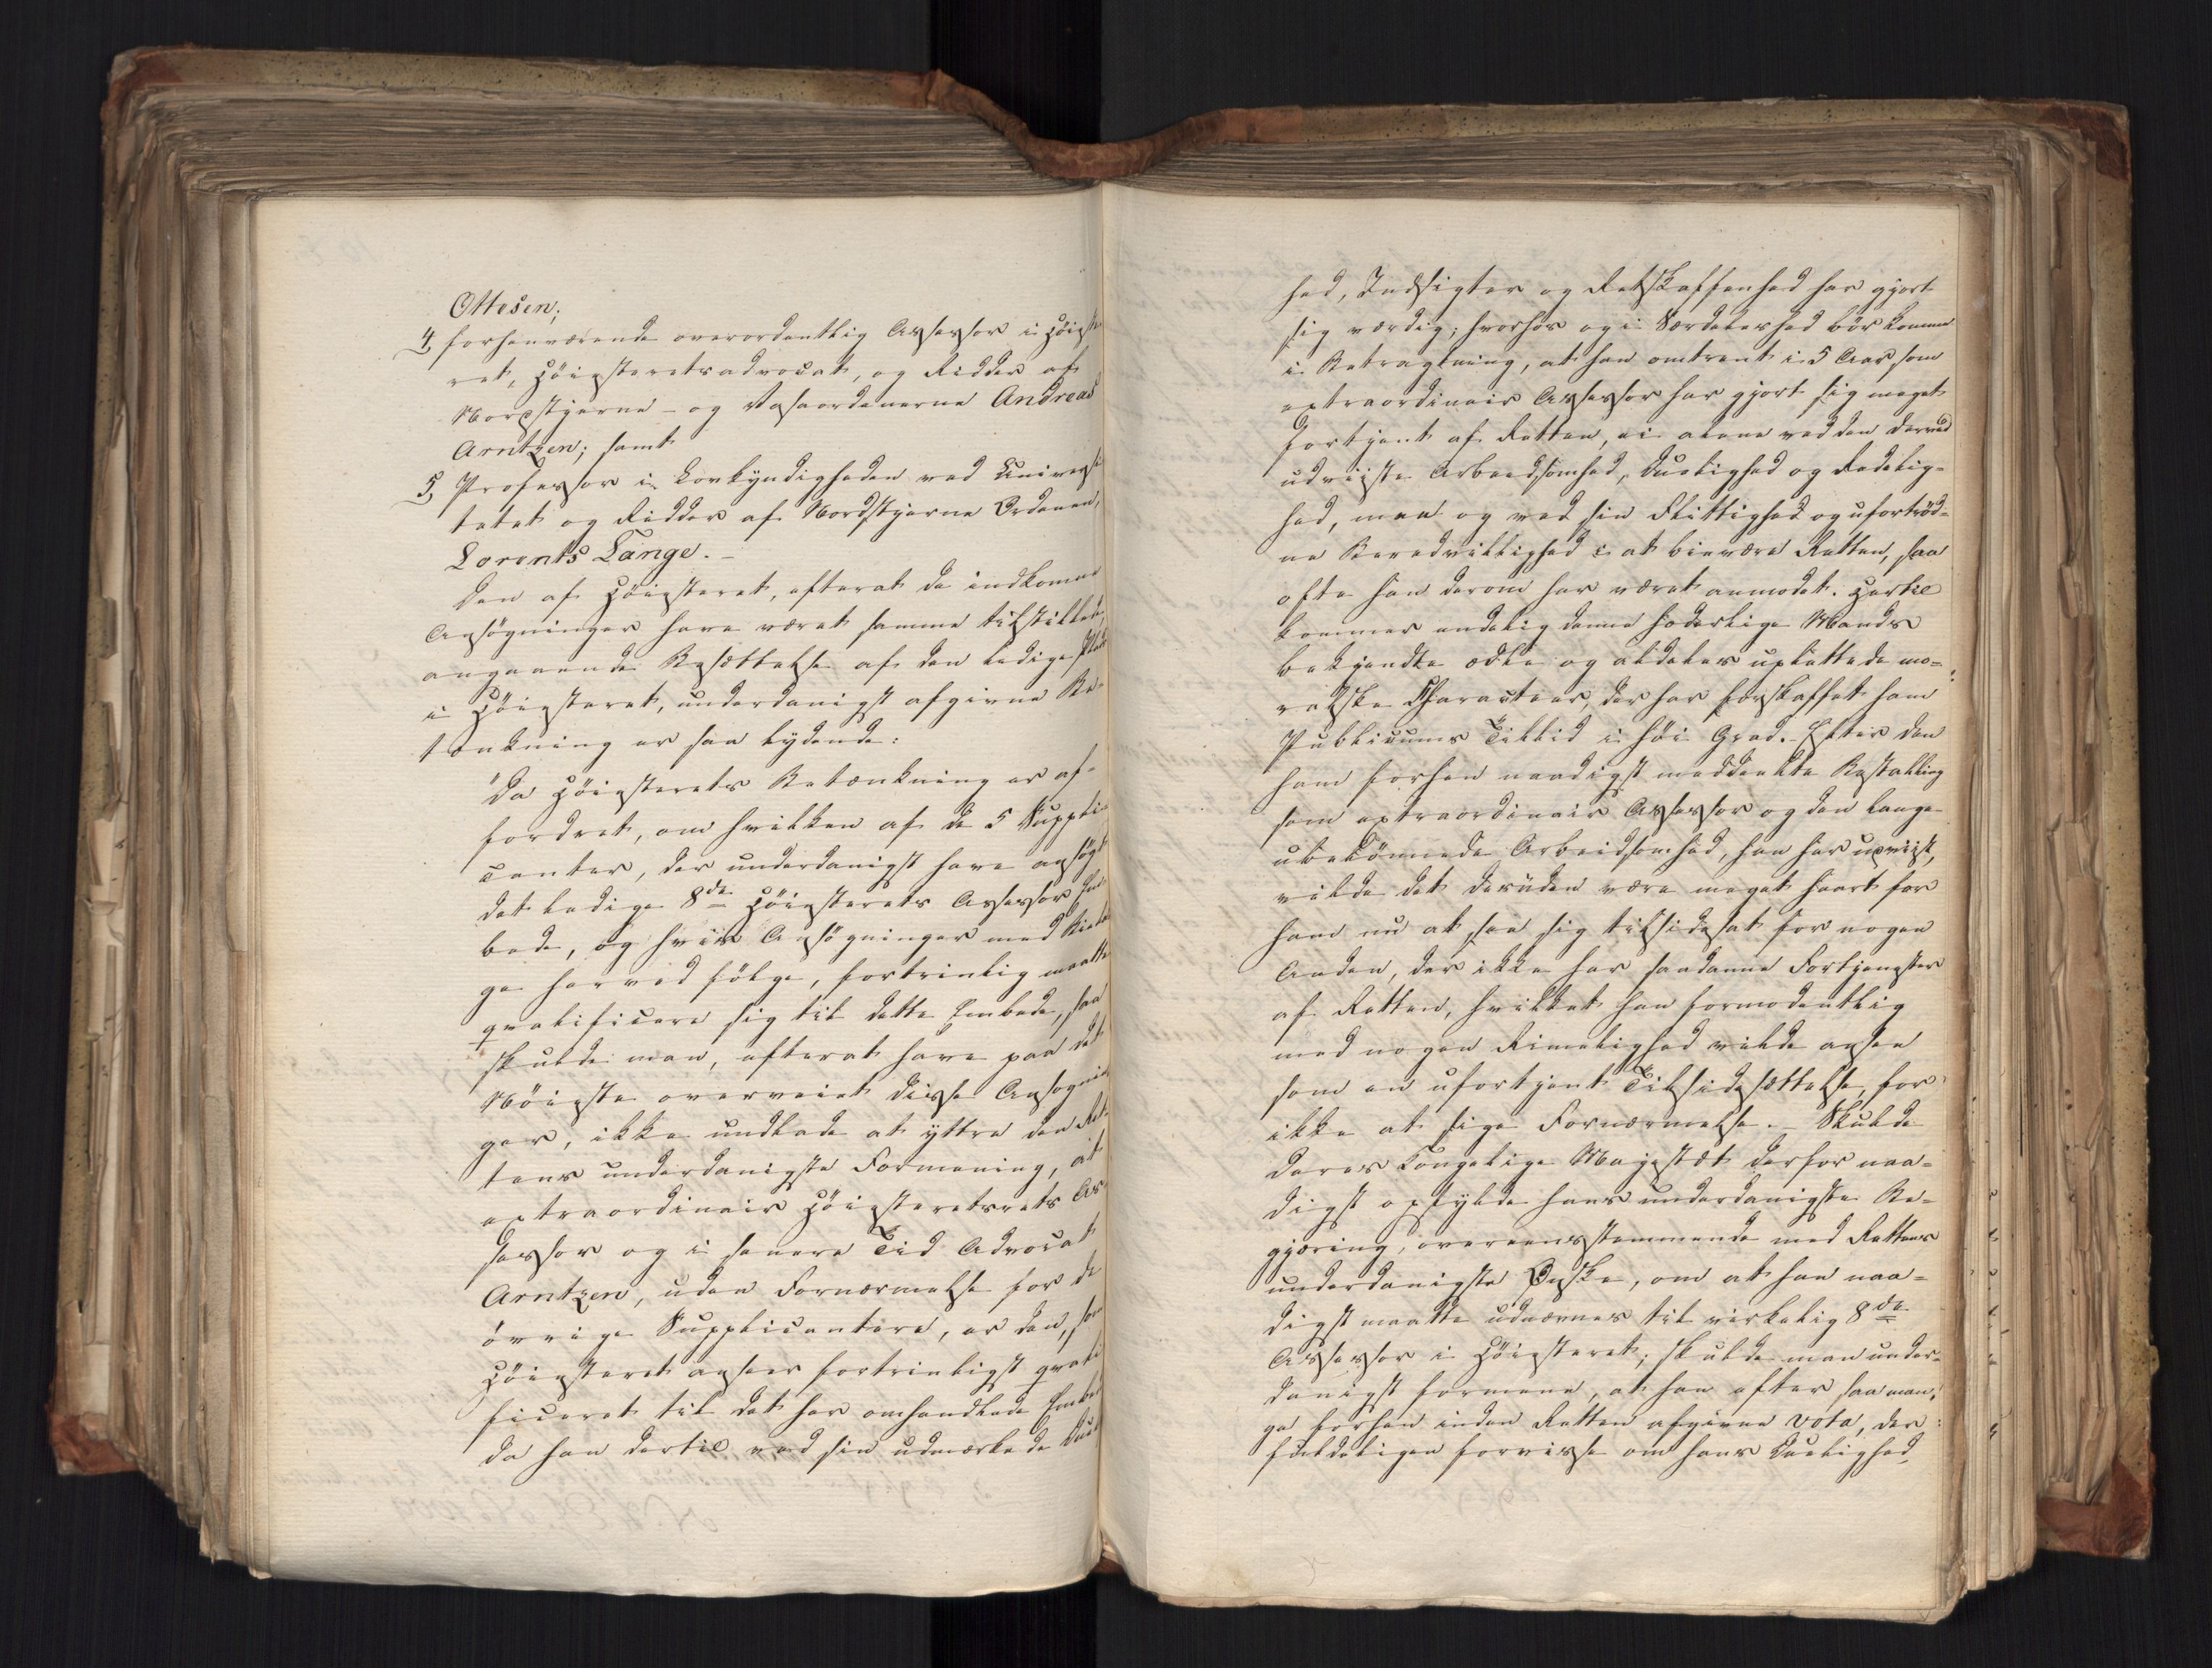 Ottesen;
4, forhenværende overordentlig Assessor i Høieste
ret, Høiesteretsadvocat, og Ridder af
Nordstjerne- og Vasaordenerne Andreas
Arntzen; samt
5, Professor i Lovkyndigheden ved Universi
tetet og Ridder af Nordstjerne Ordenen,
Lorents Lange. -
Den af Høiesteret, efterat de indkomne
Ansøgninger have været samme tilstillede,
angaaende Besættelse af den ledige Plads
i Høiesteret, underdanigst afgivne Be-
tænkning er saa lydende:
"Da Høiesterets Betænkning er af-
fordret, om hvilken af de 5 Suppli
canter, der underdanigst have ansøgt
det ledige 8de Høiesterets Assessor Em
bede, og hvis Ansøgninger med Bila
ge herved følge, fortrinlig maatte
qvalificere sig til dette Embede, saa
skulde man, efterat have paa det
Nøieste overveiet disse Ansøgnin
ger, ikke undlade at yttre den Ret
tens underdanigste Formening, at
extraordinair Høiesteretsrets As
sessor og i senere Tid Advocat
Arntzen, uden Fornærmelse for de
øvrige Supplicantere, er den, som
Høiesteret ansees fortrinligst qvali
ficeret til det her omhandlede Embed
da han dertil ved sin udmærkede Due
hed, Indsigter og Retskaffenhed har gjort
sig værdig; hvorhos og i Særdeleshed bør komme
i Betragtning, at han omtrent i 5 Aar som
extraordinair Assessor har gjort sig meget
fortjent af Retten, ei alene ved den derved
udviiste Arbeidsomhed, Duelighed og Redelig-
hed, men og ved sin Flittighed og ufortrød-
ne Beredvillighed i at bievære Retten, saa
ofte han derom har været anmodet. Hertil
kommer endelig denne hæderlige Mands
bekjendte ædle og aldeles uplettede mo-
ralske Charakteer, der har forskaffet ham
Publicums Tillid i høi Grad. Efter den
ham forhen naadigst meddeelte Bestalling
som extraordinair Assessor og den lange
ubelønnede Arbeidsomhed, han har udviist,
vilde det desuden være meget haart for
ham nu at see sig tilsidesat for nogen
Anden, der ikke har saadanne Fortjenester
af Retten, hvilket han formodentlig
med nogen Rimelighed vilde ansee
som en ufortjent Tilsidesættelse, for
ikke at sige Fornærmelse. - Skulde
Deres Kongelige Majestæt derfor naa-
digst opfylde hans underdanigste Be-
gjæring, overeensstemmende med Rettens
underdanigste Ønske, om at han naa-
digst maatte udnævnes til virkelig 8de
Assessor i Høiesteret; skulde man under-
danigst formene, at han efter saa man-
ge forhen inden Retten afgivne Vota, der
fuldeligen forvisse om hans Duelighed,